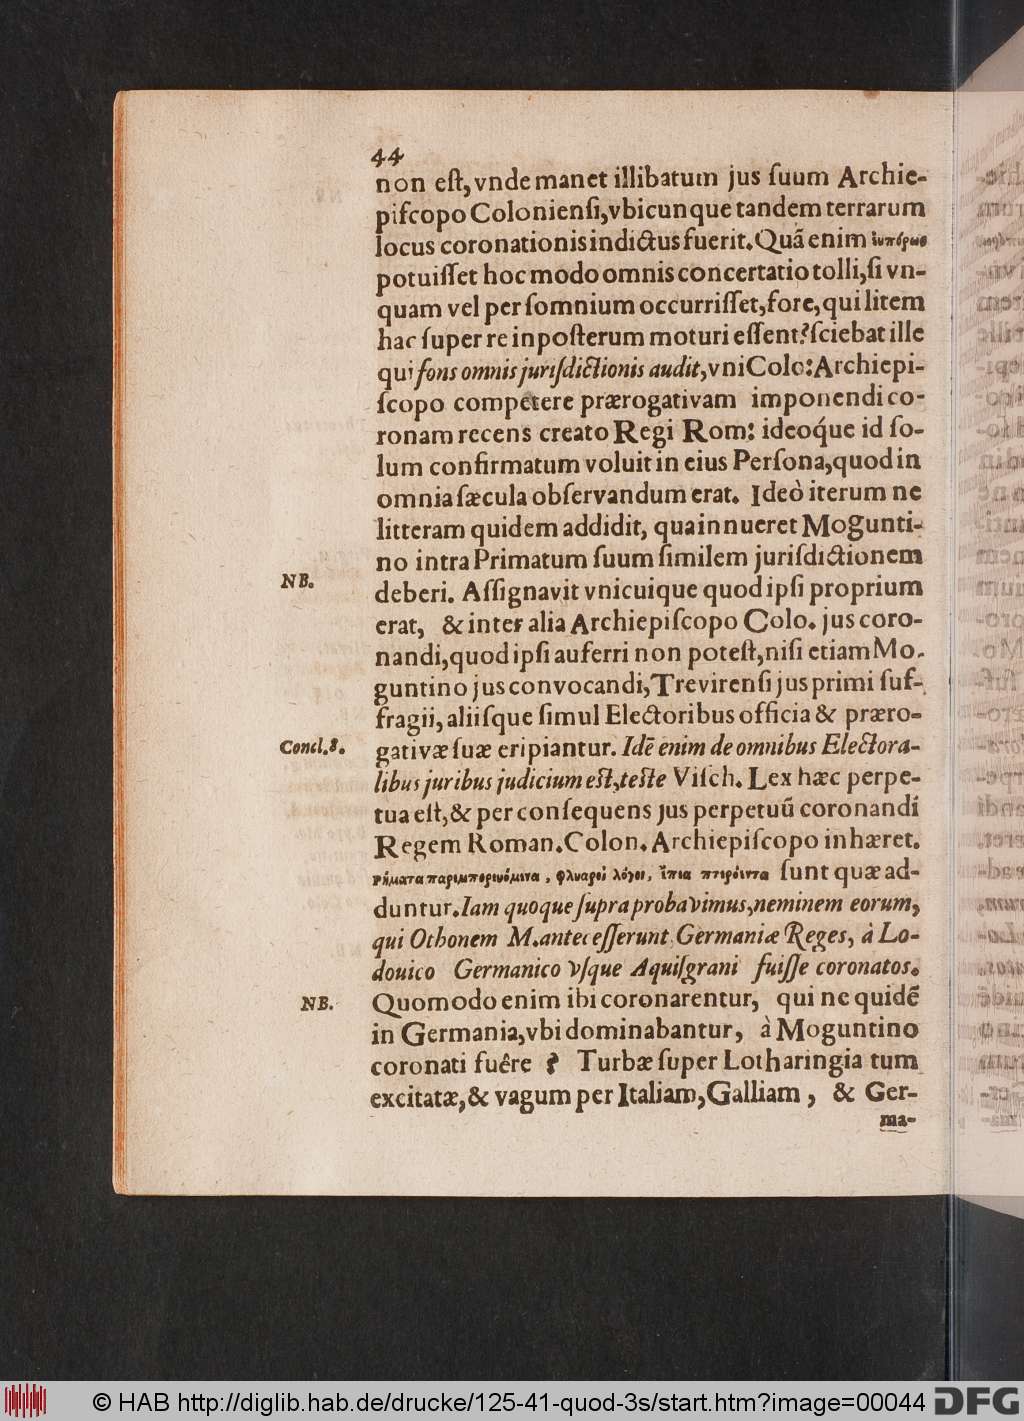 44
non eſt, vnde manet illibatum jus ſuum Archie-
piſcopo Colonienſi, vbicunque tandem terrarum
locus coronationis indictus fuerit. Quā enim
potuiſſet hoc modo omnis concertatio tolli, ſi vn-
quam vel per ſomnium occurriſſet, fore, qui litem
hac ſuper re in poſterum moturi eſſent? ſciebat ille
qui fons omnis juriſdictionis audit, vni Colo: Archiepi-
ſcopo competere prærogativam imponendi co-
ronam recens creato Regi Rom: ideoq́ue id ſo-
lum confirmatum voluit in eius Perſona, quod in
omnia ſæcula obſervandum erat. Ideò iterum ne
litteram quidem addidit, qua innueret Mogunti-
no intra Primatum ſuum ſimilem jurisdictionem
NB.
deberi. Aſſignavit vnicuique quod ipſi proprium
erat, & inter alia Archiepiſcopo Colo. jus coro-
nandi, quod ipſi auferri non poteſt, niſi etiam Mo-
guntino jus convocandi, Trevirenſi jus primi ſuf-
fragii, aliiſque ſimul Electoribus officia & præro-
Concl. 8.
gativæ ſuæ eripiantur. Idē enim de omnibus Electora-
libus juribus judicium eſt, teſte Viſch. Lex hæc perpe-
tua eſt, & per conſequens jus perpetuū coronandi
Regem Roman. Colon. Archiepiſcopo inhæret.
ῥήματα παρεμπεριγνόμενα, φλυαροὶ λόγοι, ἔπεα πτερόεντα ſunt quæ ad-
duntur. Iam quoque ſupra probavimus, neminem eorum,
qui Othonem M. anteceſſerunt Germaniæ Reges, à Lo-
douico Germanico vſque Aquiſgrani fuiſſe coronatos.
NB.
Quomodo enim ibi coronarentur, qui ne quidē
in Germania, vbi dominabantur, à Moguntino
coronati fuêre ? Turbæ ſuper Lotharingia tum
excitatæ, & vagum per Italiam, Galliam, & Ger-
ma-
© HAB http://diglib.hab.de/drucke/125-41-quod-3s/start.htm?image=00044
DFG